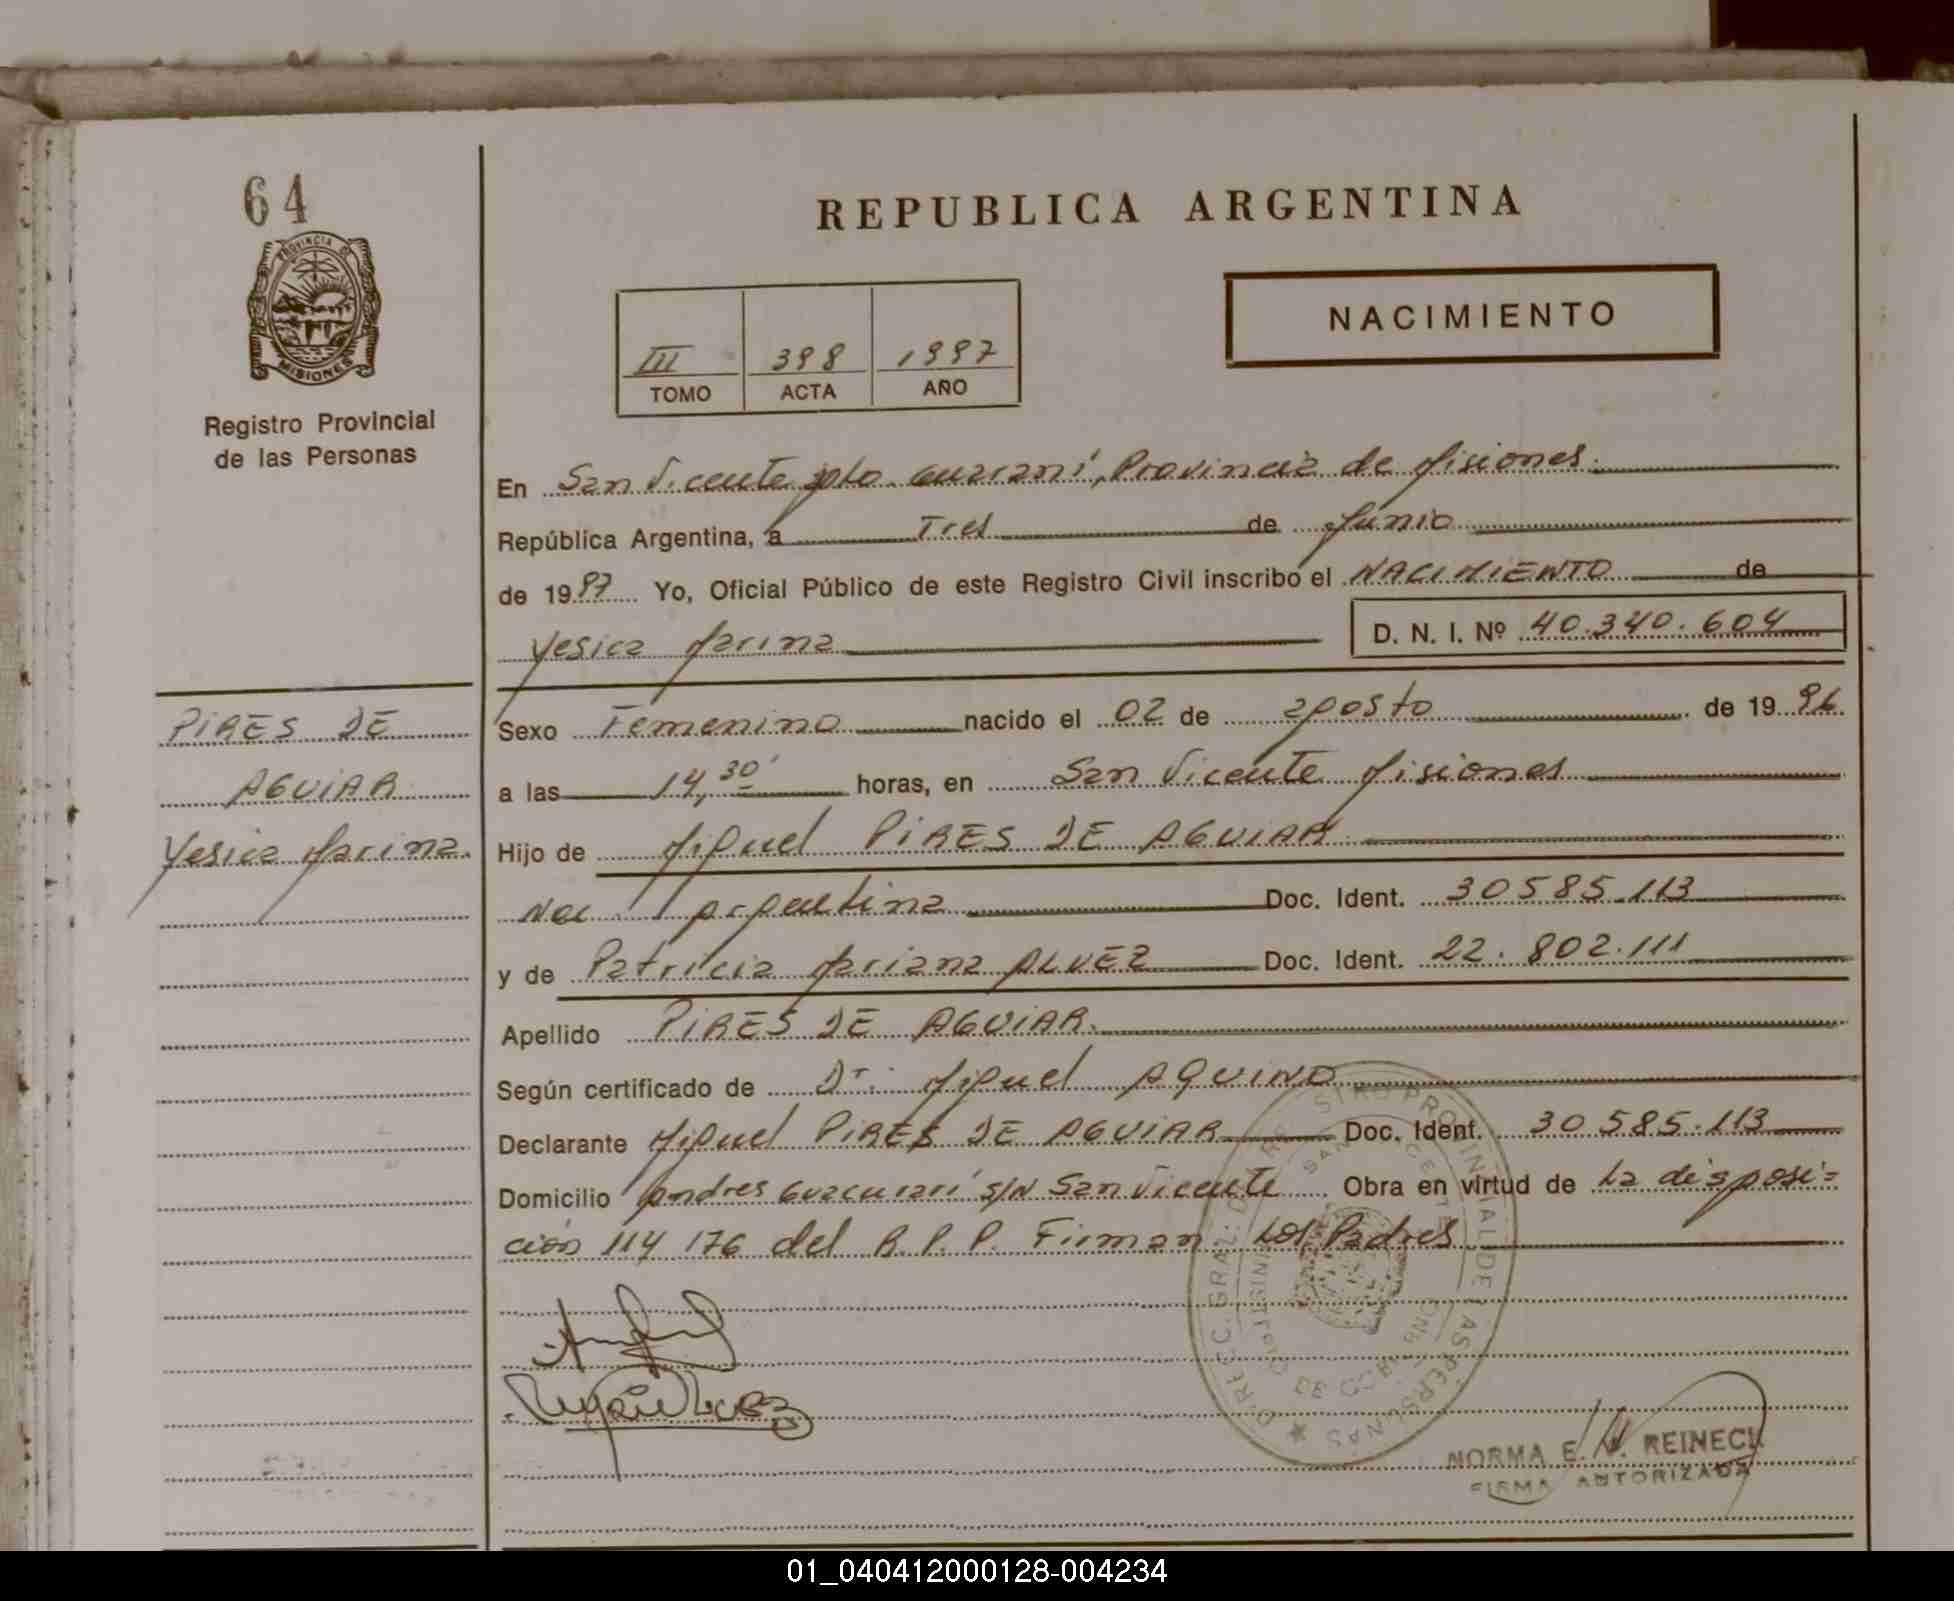 64
PROVINCIA DE
MISIONES
Registro Provincial
de las Personas
REPUBLICA ARGENTINA
NACIMIENTO
III 398 1997
TOMO ACTA AÑO
En San Vicente Dpto. Guaraní, Provincia de Misiones.
República Argentina, a Tres de Junio
de 1997 Yo, Oficial Público de este Registro Civil inscribo el NACIMIENTO de
Yesica Marina D. N. I. Nº 40.340.604
PIRES DE
AGUIAR
Yesica Marina.
Sexo Femenino nacido el 02 de agosto de 1996
a las 14,30' horas, en San Vicente Misiones
Hijo de Miguel PIRES DE AGUIAR
Nac. Argentina Doc. Ident. 30585.113
y de Patricia Mariana ALVEZ Doc. Ident. 22.802.111
Apellido PIRES DE AGUIAR.
Según certificado de Dr. Miguel AQUINO
Declarante Miguel PIRES DE AGUIAR Doc. Ident. 30585.113
Domicilio Andres Guacurarí S/N San Vicente Obra en virtud de La disposi=
ción 114 176 del R.P.P. Firman Los Padres
NORMA E. REINECK
FIRMA AUTORIZADA
01_040412000128-004234